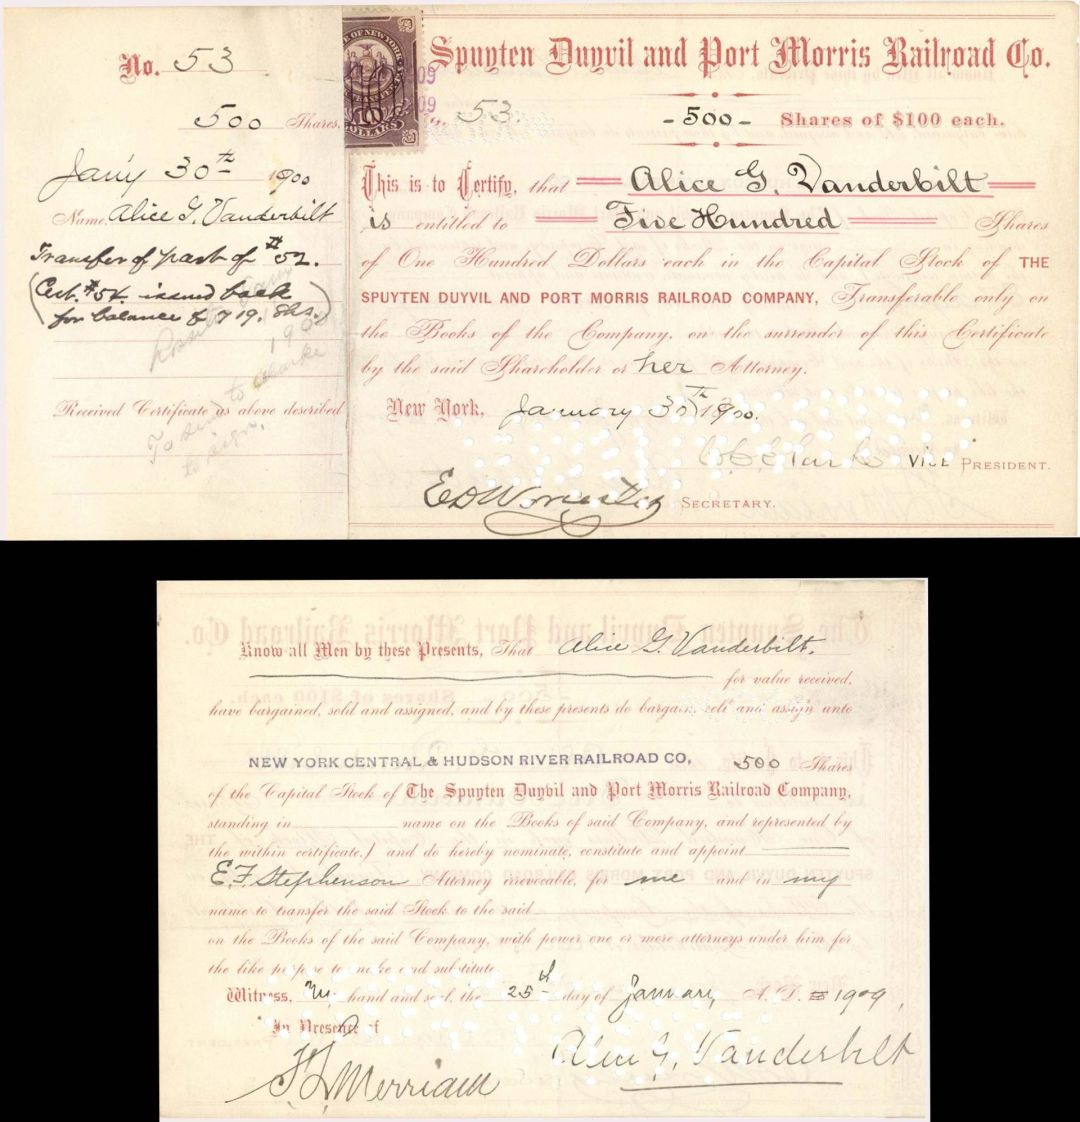 No. 53
500 Shares,
Jan'y 30th 1900
Name, Alice G. Vanderbilt
Transfer of part of #52.
(Cert. #54. issued back
for balance of 719. Shs.)
Received Certificate as above described
To send to Clarke
to sign.
E OF NEW YORK
10
DOLLARS
09
09
Spuyten Duyvil and Port Morris Railroad Co.
53.
-500- Shares of $100 each.
This is to Certify, that Alice G. Vanderbilt
is entitled to Five Hundred Shares
of One Hundred Dollars each in the Capital Stock of THE
SPUYTEN DUYVIL AND PORT MORRIS RAILROAD COMPANY, Transferable only on
the Books of the Company, on the surrender of this Certificate
by the said Shareholder or her Attorney.
New York, January 30th 1900.
VICE PRESIDENT.
E D Worcester SECRETARY.
Know all Men by these Presents, That Alice G. Vanderbilt.
for value received,
have bargained, sold and assigned, and by these presents do bargain, sell and assign unto
NEW YORK CENTRAL & HUDSON RIVER RAILROAD CO, 500 Shares
of the Capital Stock of The Spuyten Duyvil and Port Morris Railroad Company,
standing in name on the Books of said Company, and represented by
the within certificate,) and do hereby nominate, constitute and appoint
E. F. Stephenson Attorney irrevocable, for me and in my
name to transfer the said Stock to the said
on the Books of the said Company, with power one or more attorneys under him for
the like purpose to make and substitute
Witness, my hand and seal, the 25th day of January, A. D. 1909,
In Presence of
F L Merriam
Alice G. Vanderbilt